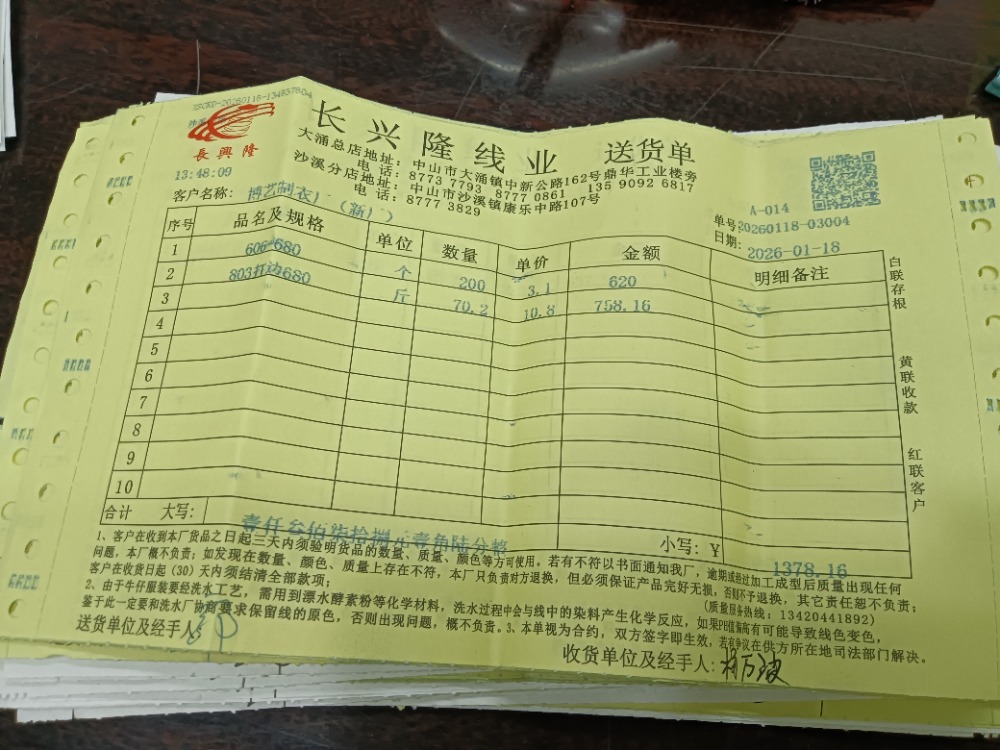 長興隆
长兴隆线业 送货单
大涌总店地址：中山市大涌镇中新公路162号鼎华工业楼旁
电话：8773 7793 8777 0861 135 9092 6817
沙溪分店地址：中山市沙溪镇康乐中路107号
电话：8777 3829
13:48:09
A-014
客户名称：博艺制衣厂（新厂）
单号：20260118-03004
日期：2026-01-18
序号 品名及规格 单位 数量 单价 金额 明细备注
1 606-680 个 200 3.1 620
2 803打边680 斤 70.2 10.8 758.16
3
4
5
6
7
8
9
10
白联存根
黄联收款
红联客户
合计 大写：壹仟叁佰柒拾捌元壹角陆分整 小写：￥ 1378.16
1、客户在收到本厂货品之日起三天内须验明货品的数量、质量、颜色等方可使用，若有不符以书面通知我厂，逾期或经过加工成型后质量出现任何
问题，本厂概不负责；如发现在数量、颜色、质量上存在不符，本厂只负责对方退换，但必须保证产品完好无损，否则不予退换，其它责任恕不负责；
客户在收货日起（30）天内须结清全部款项； （质量服务热线：13420441892）
2、由于牛仔服装要经洗水工艺，需用到漂水酵素粉等化学材料，洗水过程中会与线中的染料产生化学反应，如果PH值偏高有可能导致线色变色，
鉴于此一定要和洗水厂协商要求保留线的原色，否则出现问题，概不负责。3、本单视为合约，双方签字即生效，若有争议在供方所在地司法部门解决。
送货单位及经手人：
收货单位及经手人：